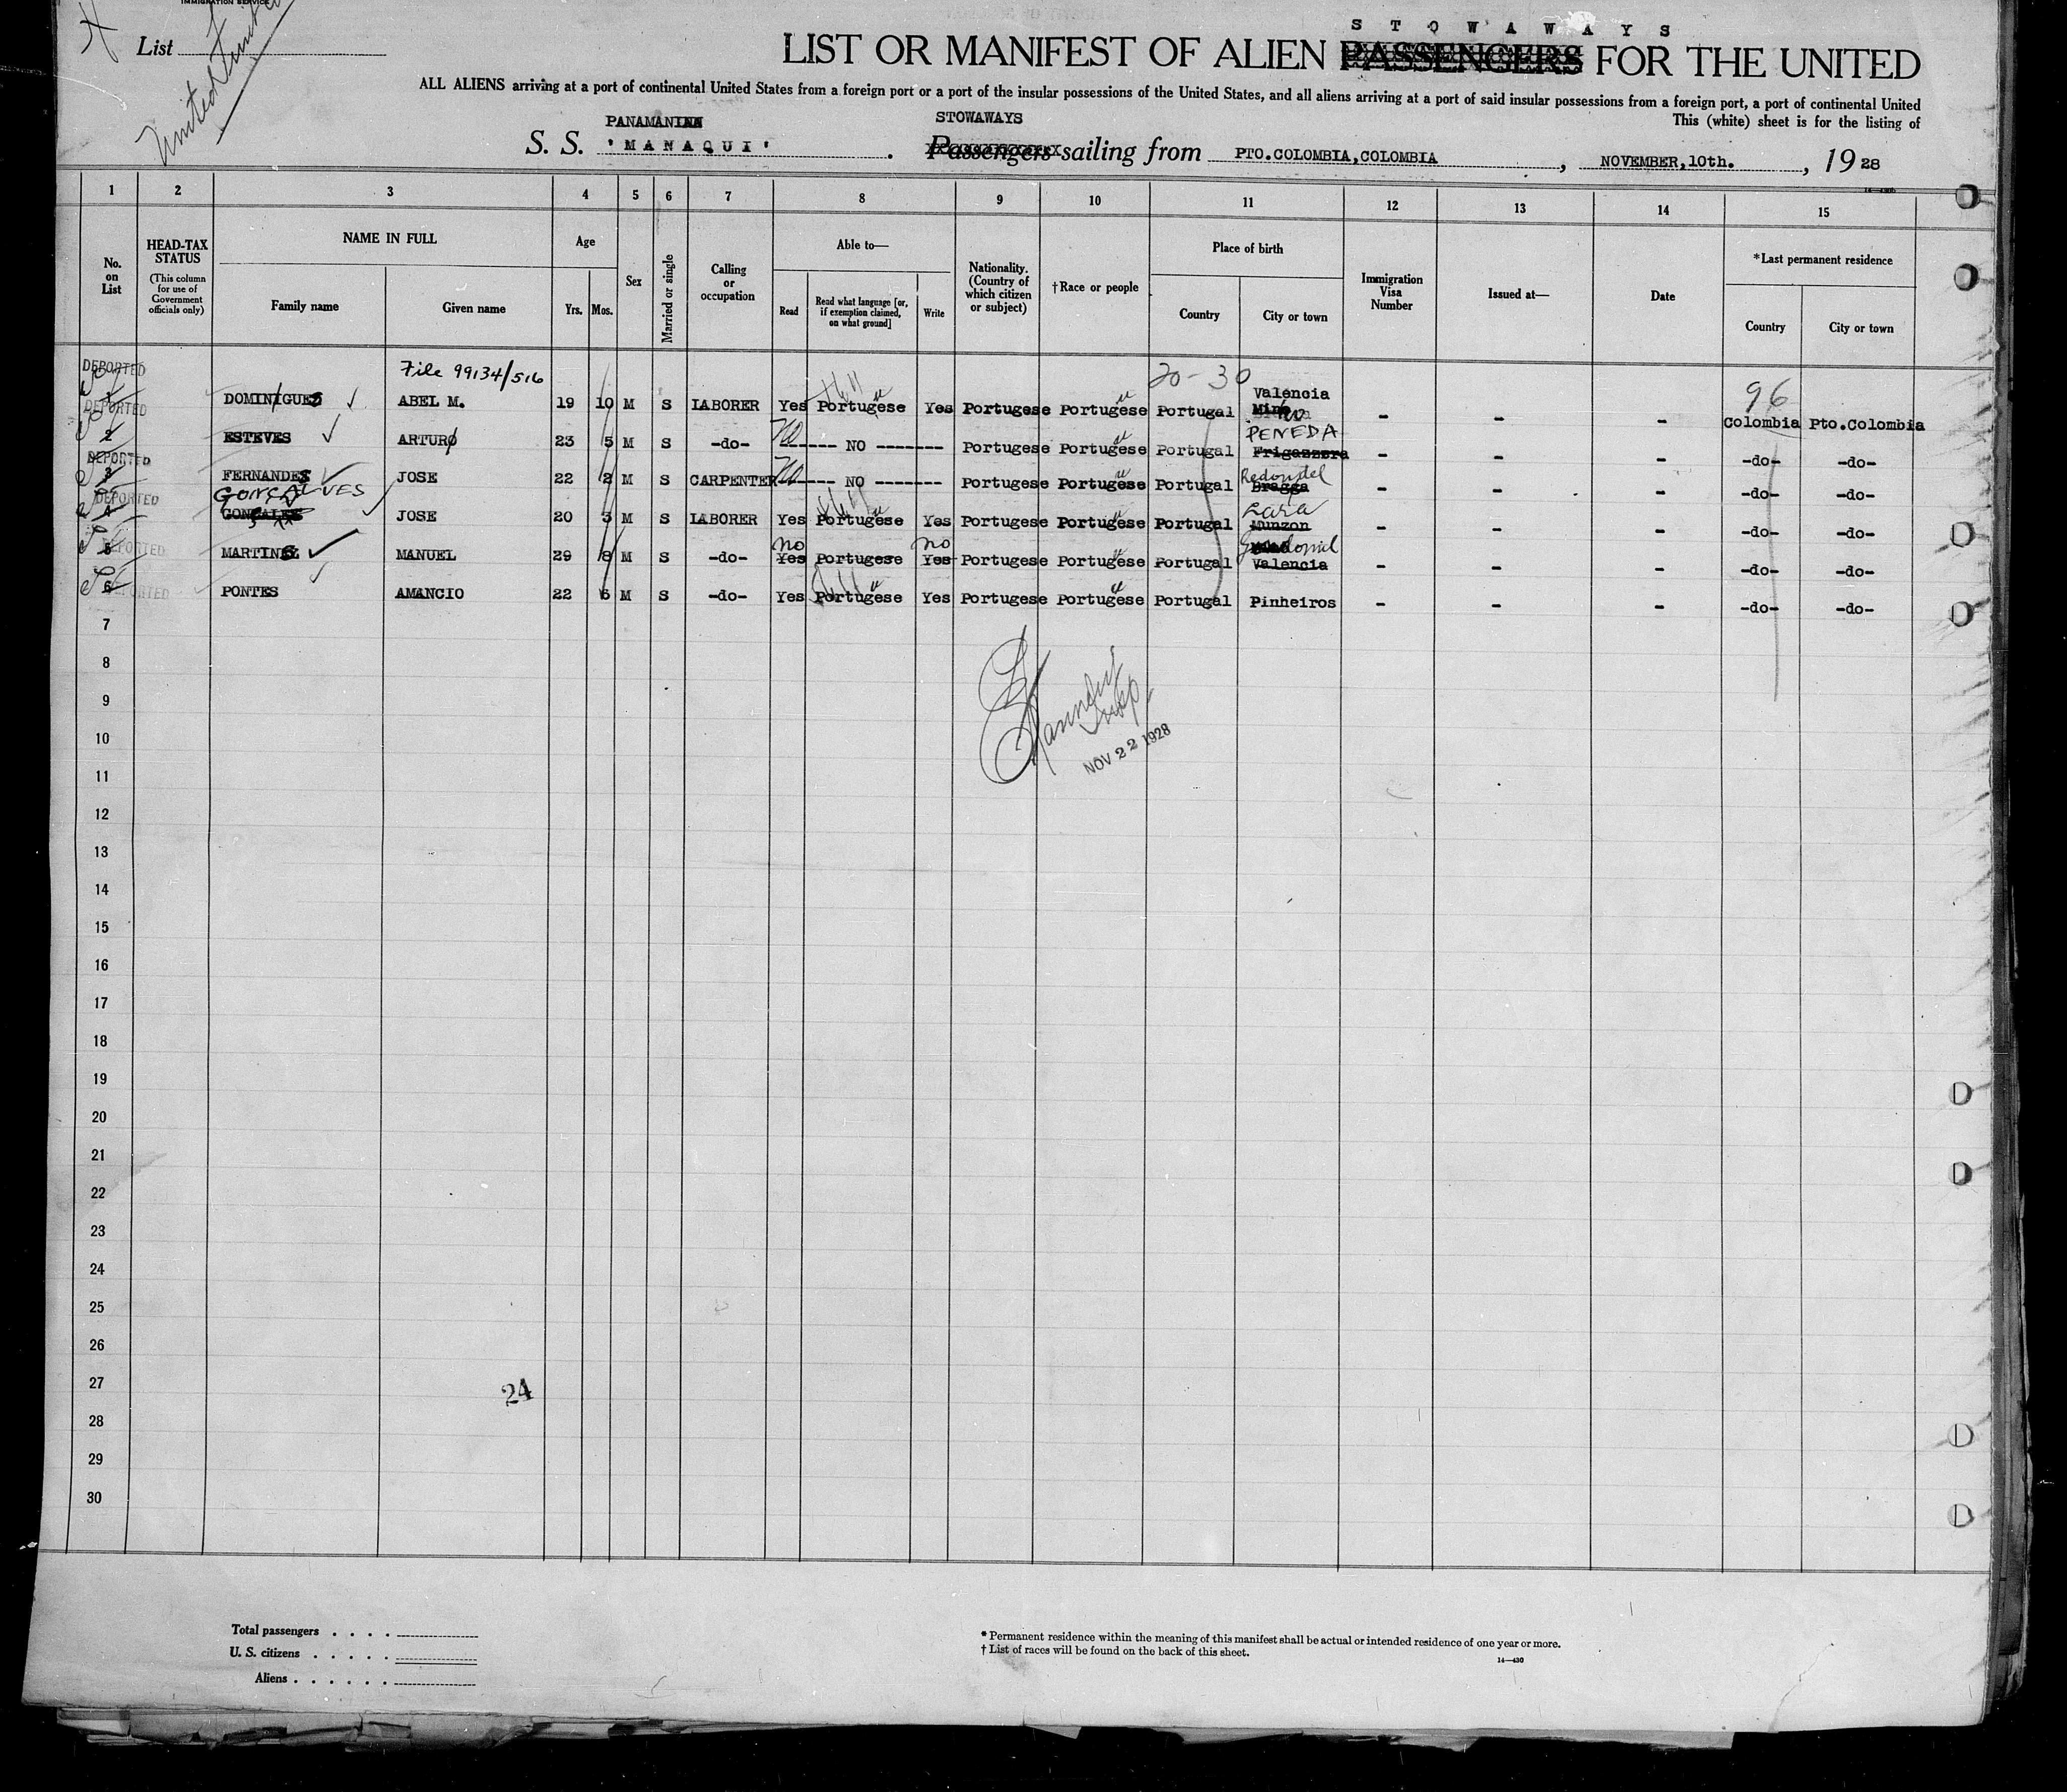 IMMIGRATION SERVICE
STOWAWAYS
List
United Fruit
LIST OR MANIFEST OF ALIEN PASSENGERS FOR THE UNITED
ALL ALIENS arriving at a port of continental United States from a foreign port or a port of the insular possessions of the United States, and all aliens arriving at a port of said insular possessions from a foreign port, a port of continental United
This (white) sheet is for the listing of
PANAMANIAN STOWAWAYS
S. S. 'MANAQUI'. Passengers sailing from PTO.COLOMBIA,COLOMBIA, NOVEMBER,10th., 1928
1 2 3 4 5 6 7 8 9 10 11 12 13 14 15
No. on List
HEAD-TAX STATUS
(This column for use of Government officials only)
NAME IN FULL
Family name Given name
Age
Yrs. Mos.
Sex
Married or single
Calling or occupation
Able to—
Read
Read what language [or, if exemption claimed, on what ground]
Write
Nationality. (Country of which citizen or subject)
†Race or people
Place of birth
Country City or town
Immigration Visa Number
Issued at—
Date
*Last permanent residence
Country City or town
File 99134/516 20-30 96
DEPORTED
1 DOMINGUES ✓ ABEL M. 19 10 M S LABORER Yes Portugese Yes Portugese Portugese Portugal Valencia Minho - - - Colombia Pto.Colombia
DEPORTED
2 ESTEVES ✓ ARTURO 23 5 M S -do- No ----- NO ------- Portugese Portugese Portugal PENEDA Frigazzera - - - -do- -do-
DEPORTED
3 FERNANDES ✓ JOSE 22 2 M S CARPENTER No ----- NO ------- Portugese Portugese Portugal Redondel Bragga - - - -do- -do-
DEPORTED
4 GONÇALVES JOSE 20 3 M S LABORER Yes Portugese Yes Portugese Portugese Portugal Lara Munzon - - - -do- -do-
DEPORTED
5 MARTINS ✓ MANUEL 29 8 M S -do- no Yes Portugese no Yes Portugese Portugese Portugal Valencia - - - -do- -do-
DEPORTED
6 PONTES ✓ AMANCIO 22 6 M S -do- Yes Portugese Yes Portugese Portugese Portugal Pinheiros - - - -do- -do-
7
8
9
10
Insp
NOV 22 1928
11
12
13
14
15
16
17
18
19
20
21
22
23
24
25
26
27
24
28
29
30
Total passengers . . . .
U. S. citizens . . . . .
Aliens . . . . . .
* Permanent residence within the meaning of this manifest shall be actual or intended residence of one year or more.
† List of races will be found on the back of this sheet.
14—430